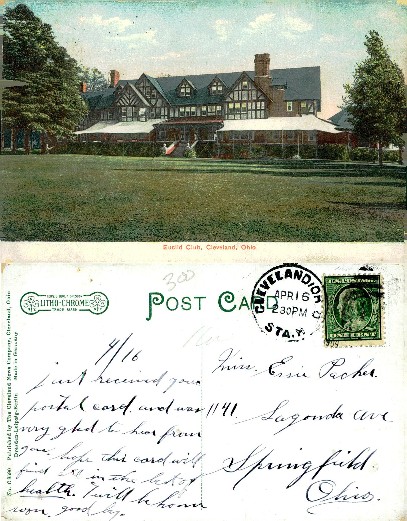 Euclid Club, Cleveland, Ohio
LITHO-CHROME
TRADE MARK
300
POST CARD
CLEVELAND, OH
APR 16
2 30 PM
STA.
Published by The Cleveland News Company, Cleveland, Ohio
Dresden-Leipzig-Berlin
Made in Germany
4/16
just received your
postal card and was
very glad to hear from
you hope this card will
find all in the best of
health. I will be home
soon good by.
Miss Essie Pucher
1141 Lagonda Ave
Springfield
Ohio.